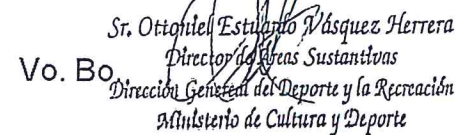 Sr. Ottoniel Estuardo Vásquez Herrera
Director de Áreas Sustantivas
Vo. Bo.
Dirección General del Deporte y la Recreación
Ministerio de Cultura y Deporte